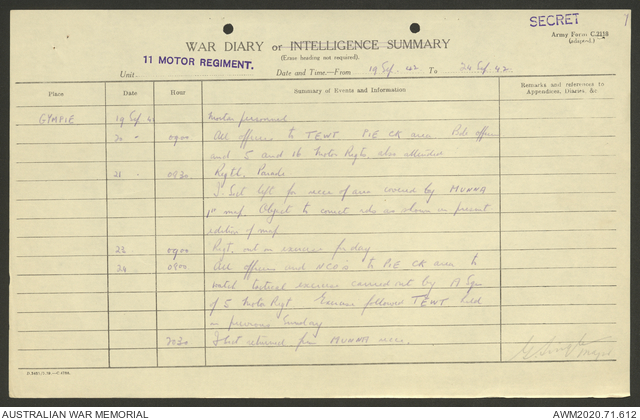 SECRET
Army Form C.2118
(adapted.)
WAR DIARY or INTELLIGENCE SUMMARY
(Erase heading not required).
11 MOTOR REGIMENT.
Unit
Date and Time—From 19 Sep. 42 To 24 Sep. 42
Place Date Hour Summary of Events and Information Remarks and references to Appendices, Diaries, &c
GYMPIE 19 Sep 42 Motor personnel
20 " 0900 All officers to TEWT PIE CK area Bde officers
and 5 and 16 Motor Regts also attended
21 0930 Regtl. Parade
I Sect left for recce of area covered by MUNNA
1" map. Object to correct rds as shown on present
edition of map
23 0900 Regt. out on exercise for day
24 0900 All officers and NCO's to PIE CK area to
watch tactical exercise carried out by A Sqn
of 5 Motor Regt Exercise followed TEWT held
on previous Sunday
2030 I Sect returned from MUNNA recce.
Major
AUSTRALIAN WAR MEMORIAL
AWM2020.71.612